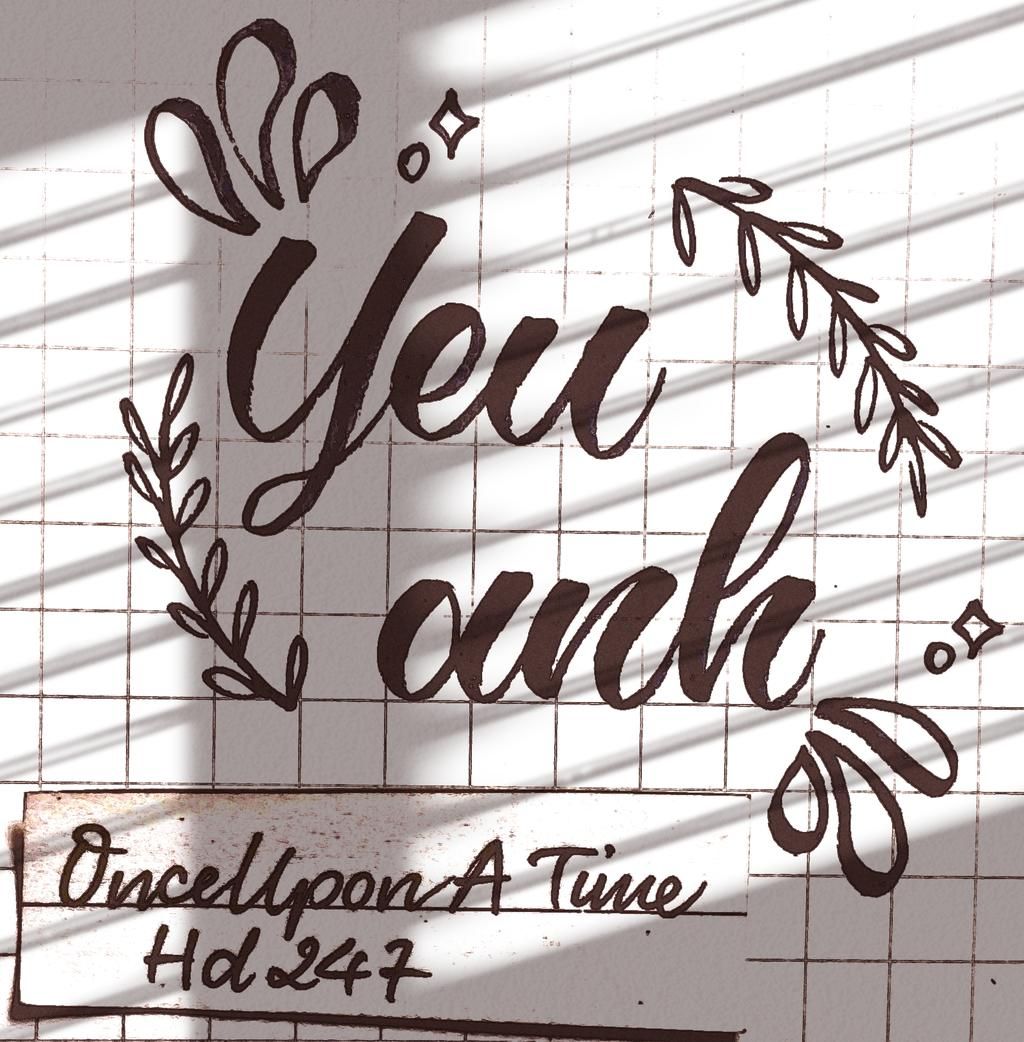 Yeu
anh
OnceUpon A Time
Hd 247